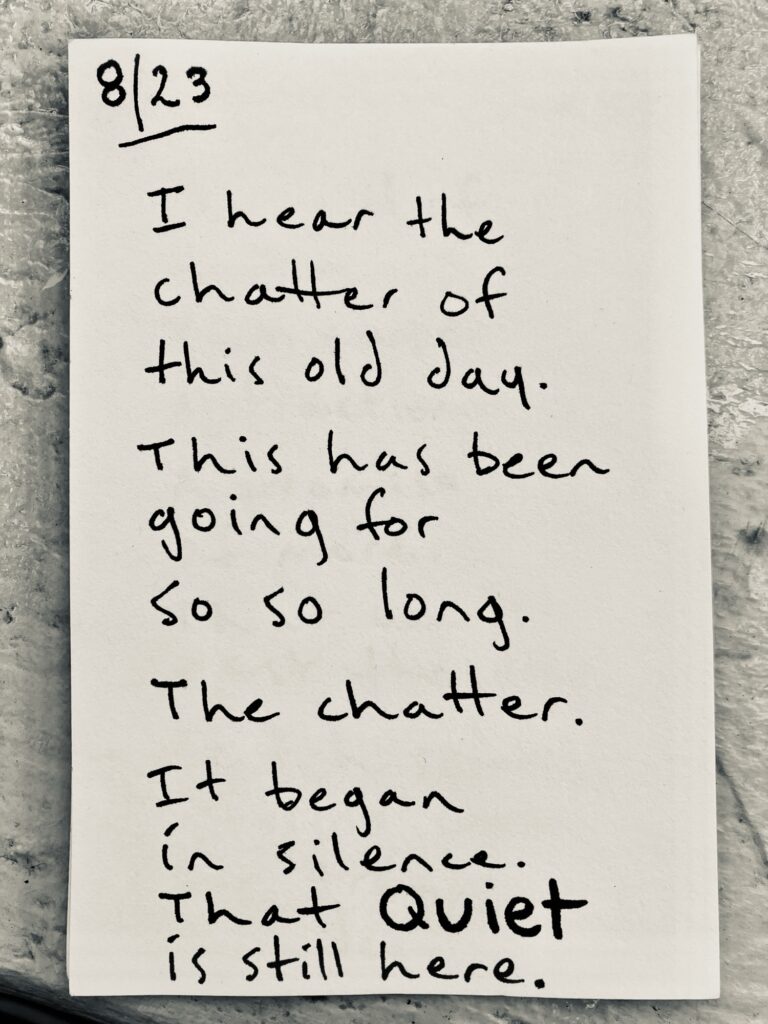 8/23
I hear the
chatter of
this old day.
This has been
going for
so so long.
The chatter.
It began
in silence.
That Quiet
is still here.